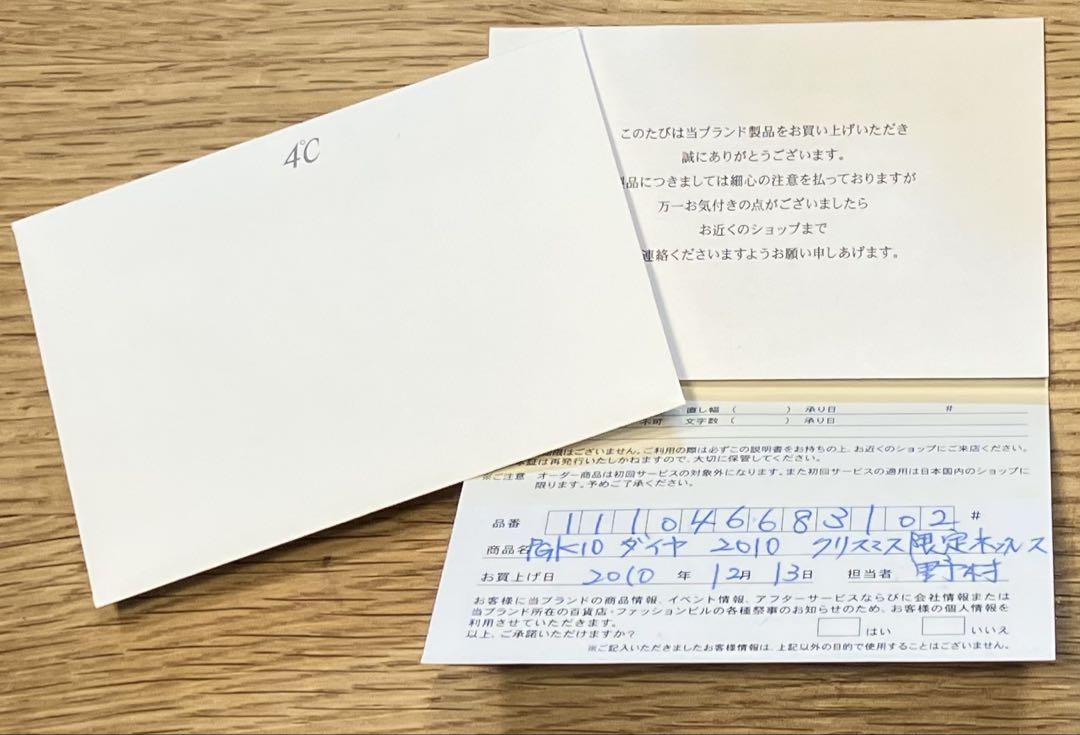 4℃
このたびは当ブランド製品をお買い上げいただき
誠にありがとうございます。
品につきましては細心の注意を払っておりますが
万一お気付きの点がございましたら
お近くのショップまで
連絡くださいますようお願い申しあげます。
直し幅 ( ) 承り日 #
不可 文字数 ( ) 承り日
はございません。ご利用の際は必ずこの説明書をお持ちの上、お近くのショップにご来店ください。
証は再発行いたしかねますので、大切に保管してください。
※ご注意 オーダー商品は初回サービスの対象外になります。また初回サービスの適用は日本国内のショップに
限ります。予めご了承ください。
品番 111046683102 #
商品名 PGK10 ダイヤ 2010 クリスマス限定ネックレス
お買上げ日 2010 年 12月 13日 担当者 野村
お客様に当ブランドの商品情報、イベント情報、アフターサービスならびに会社情報または
当ブランド所在の百貨店・ファッションビルの各種祭事のお知らせのため、お客様の個人情報を
利用させていただきます。
以上、ご承諾いただけますか? はい いいえ
※ご記入いただきましたお客様情報は、上記以外の目的で使用することはございません。